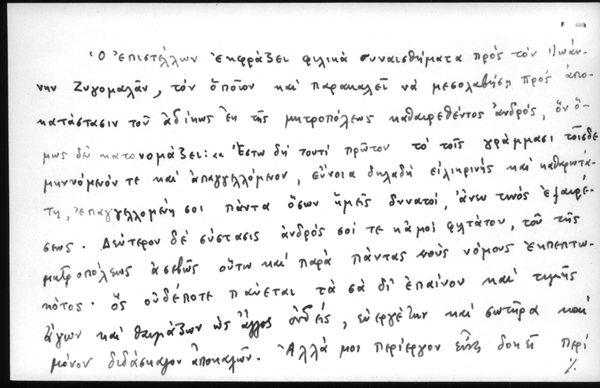 Ὁ ἐπιστέλλων ἐκφράζει φιλικὰ συναισθήματα πρὸς τὸν Ἰωάν-
νην Ζυγομαλᾶν, τὸν ὁποῖον καὶ παρακαλεῖ νὰ μεσολαβήσῃ πρὸς ἀπο-
κατάστασιν τοῦ ἀδίκως ἐκ τῆς μητροπόλεως καθαιρεθέντος ἀνδρός, ὃν ὅ-
μως δὲν κατονομάζει: "Ἔστω δὴ τουτὶ πρῶτον τὸ τοῖς γράμμασι τοῖσδε
μηνυόμενόν τε καὶ ἀπαγγελλόμενον, εὔνοια δηλαδὴ εἰλικρινὴς καὶ καθαρωτά-
τη, ἐπαγγελλομένη σοι πάντα ὅσων ἡμεῖς δυνατοί, ἄνευ τινὸς ἐξαιρέ-
σεως. Δεύτερον δὲ σύστασις ἀνδρός σοί τε κἀμοὶ φιλτάτου, τοῦ τῆς
μητροπόλεως ἀσεβῶς οὕτω καὶ παρὰ πάντας τοὺς νόμους ἐκπεπτω-
κότος· ὃς οὐδέποτε παύεται τὰ σὰ δι' ἐπαίνου καὶ τιμῆς
ἄγων καὶ θαυμάζων ὡς ἄλλος οὐδείς, εὐεργέτην καὶ σωτῆρα καὶ
μόνον διδάσκαλον ἀποκαλῶν. Ἀλλά μοι περίεργον δοκεῖ περὶ
./.